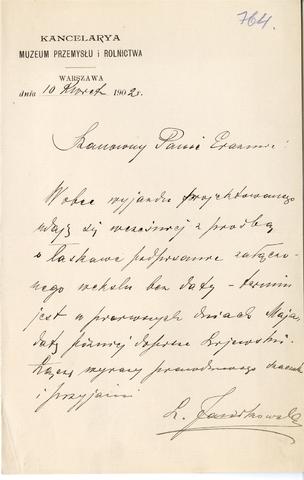 764.
KANCELARYA
MUZEUM PRZEMYSŁU i ROLNICTWA
WARSZAWA
dnia 10 Kwiet 1902 r.
Szanowny Panie Erazmie!
Wobec wyjazdu projektowanego
udaję się wcześniej z prośbą
o łaskawe podpisanie załączo-
nego wekslu bez daty – termin
jest w pierwszych dniach Maja,
datę później dopisze
Łączę wyrazy prawdziwego szacunku
i przyjaźni